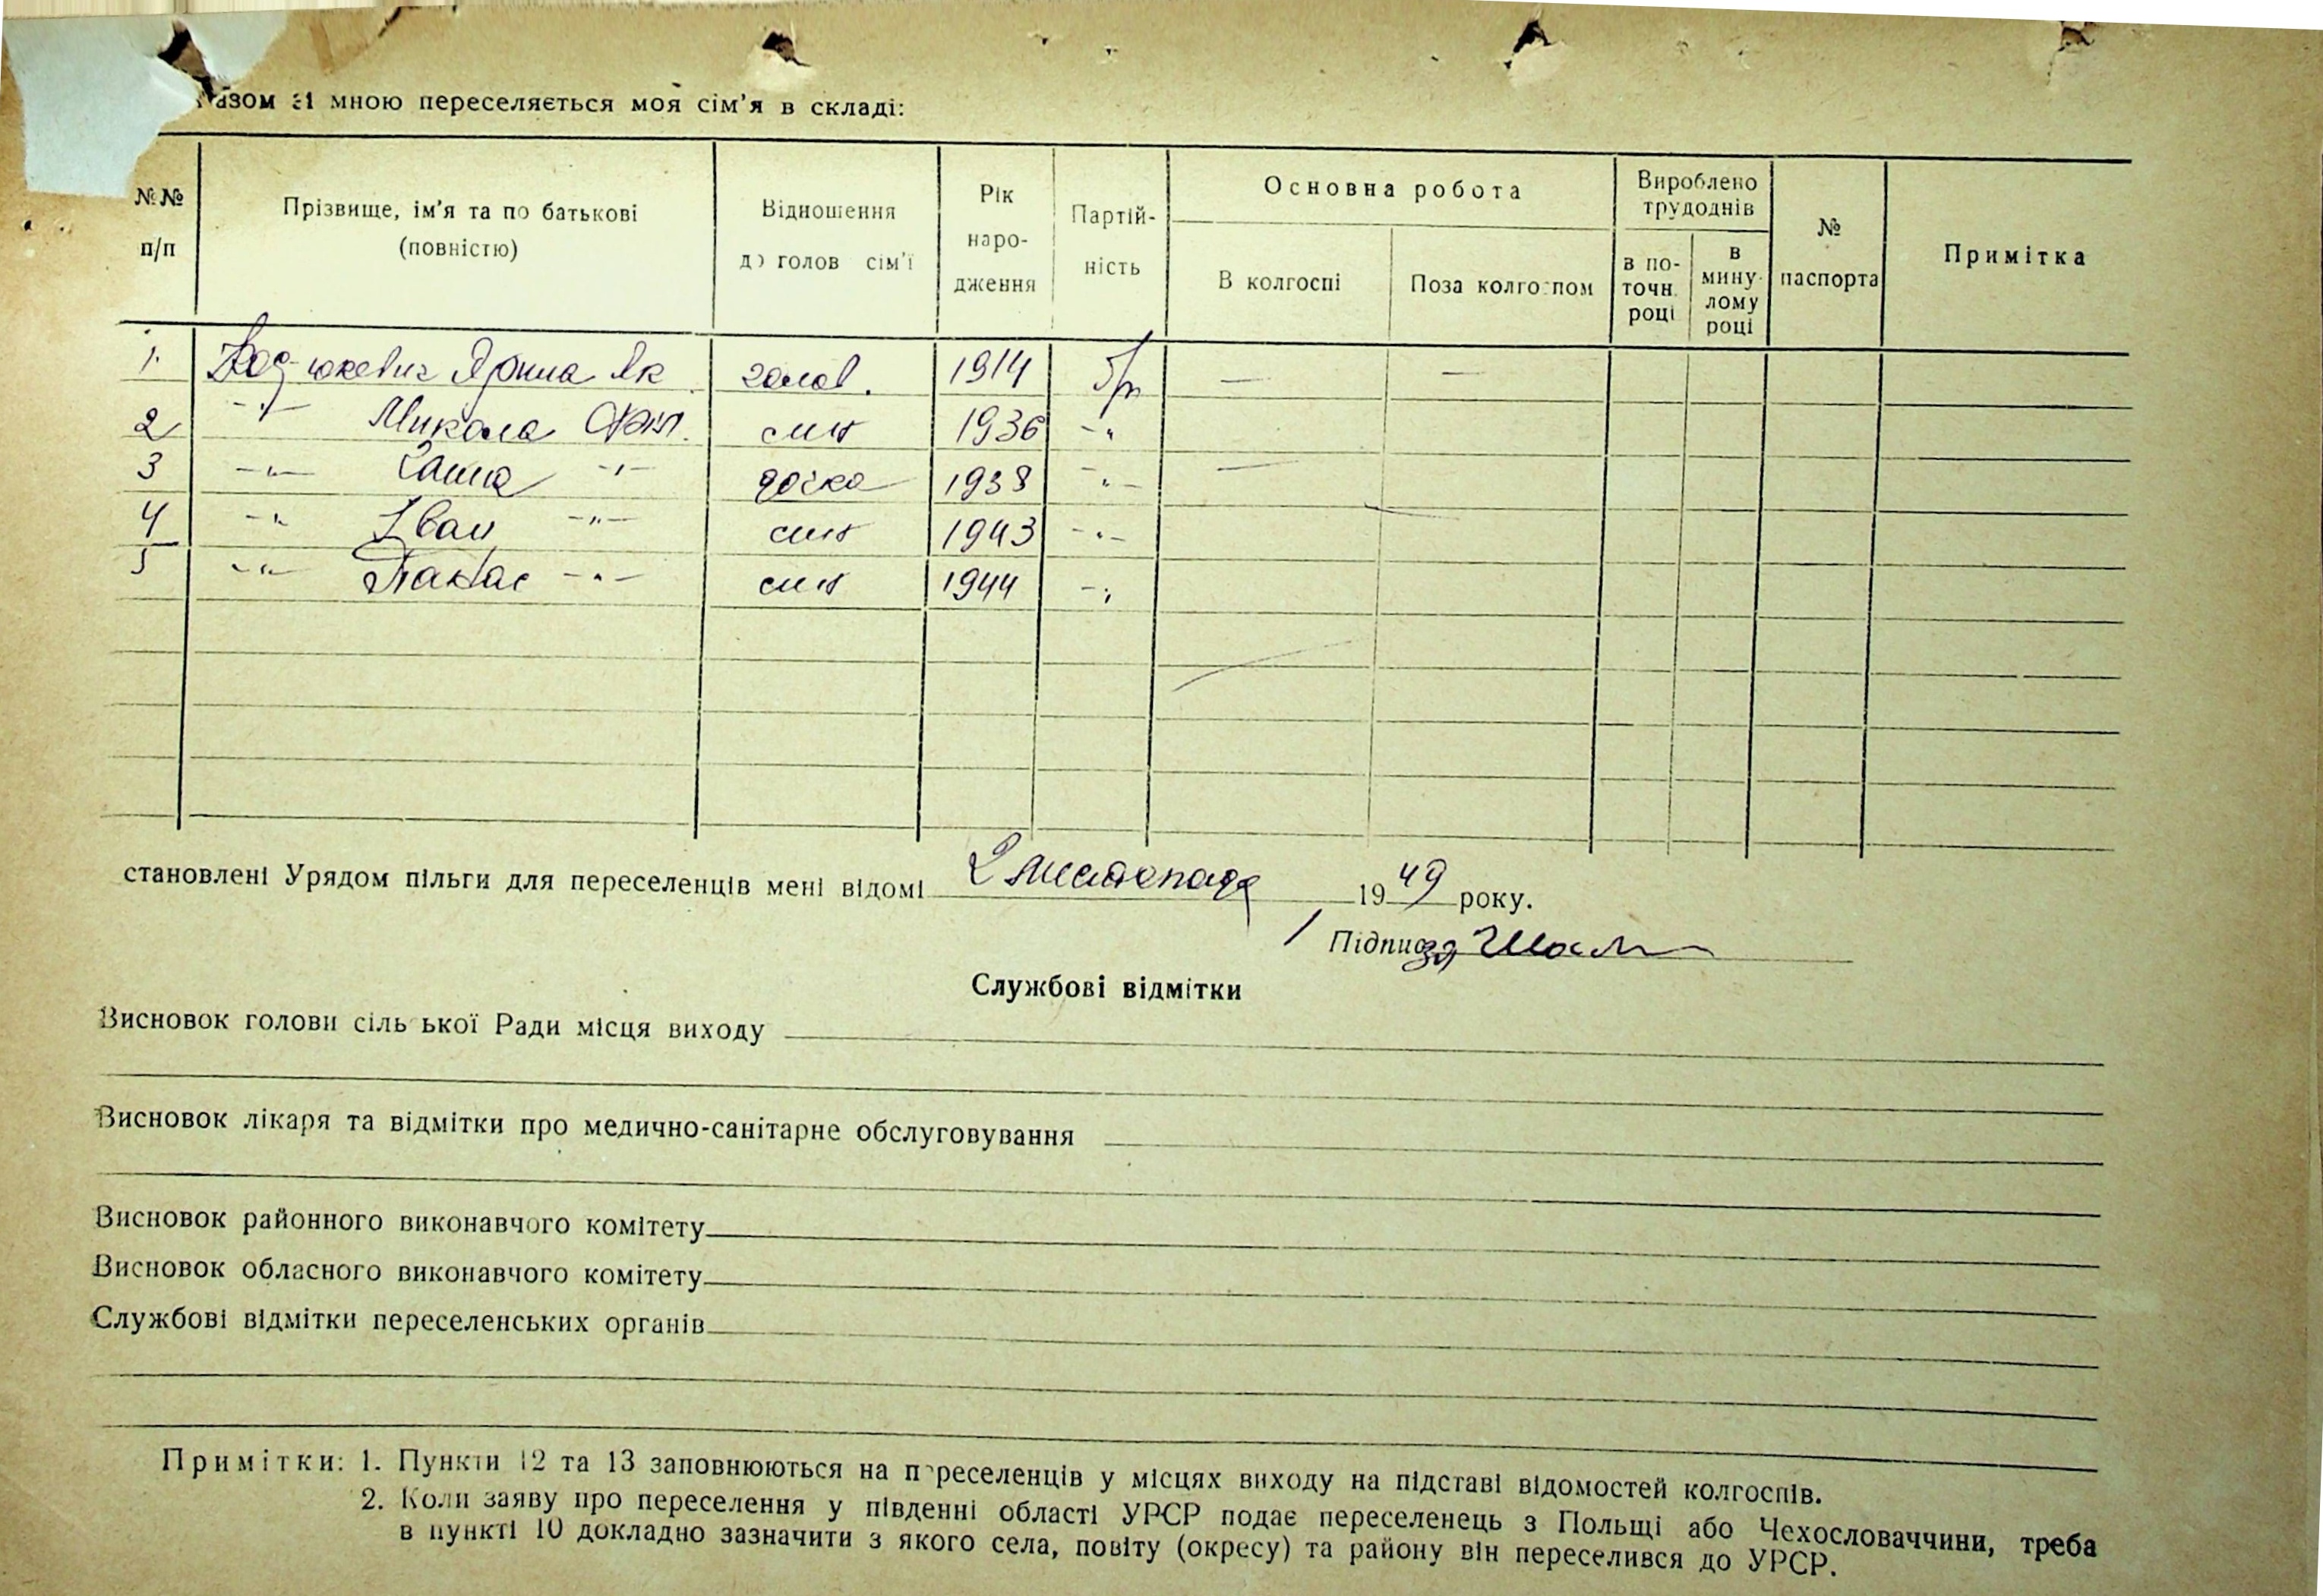 азом зі мною переселяється моя сім'я в складі:
№№ п/п
Прізвище, ім'я та по батькові (повністю)
Відношення до голов сім'ї
Рік наро-дження
Партій-ність
Основна робота
В колгоспі
Поза колгоспом
Вироблено трудоднів
в по-точн. році
в мину-лому році
№ паспорта
Примітка
1. Ярина Як голов. 1914 б/п — —
2 -"- Микола син 1936 -"-
3 -"- Ганна -"- дочка 1938 -"- —
4 -"- Іван -"- син 1943 -"-
5 -"- Панас -"- син 1944 -"-
становлені Урядом пільги для переселенців мені відомі 2 листопада 1949 року.
Підпис
Службові відмітки
Висновок голови сіль ької Ради місця виходу
Висновок лікаря та відмітки про медично-санітарне обслуговування
Висновок районного виконавчого комітету
Висновок обласного виконавчого комітету
Службові відмітки переселенських органів
Примітки: 1. Пункти 12 та 13 заповнюються на переселенців у місцях виходу на підставі відомостей колгоспів.
2. Коли заяву про переселення у південні області УРСР подає переселенець з Польщі або Чехословаччини, треба
в пункті 10 докладно зазначити з якого села, повіту (окресу) та району він переселився до УРСР.